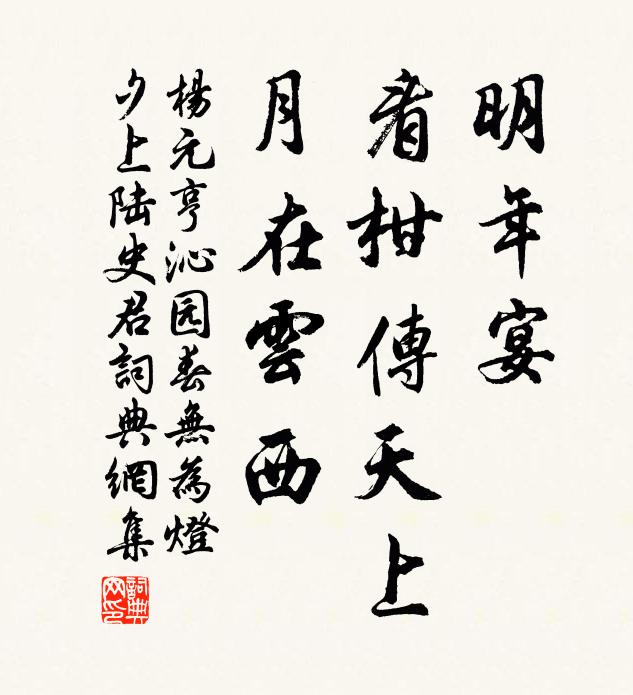 明年宴
看柑傳天上
月在雲西
楊元亨沁园春無為燈
夕上陆史君詞典網集
詞典网印